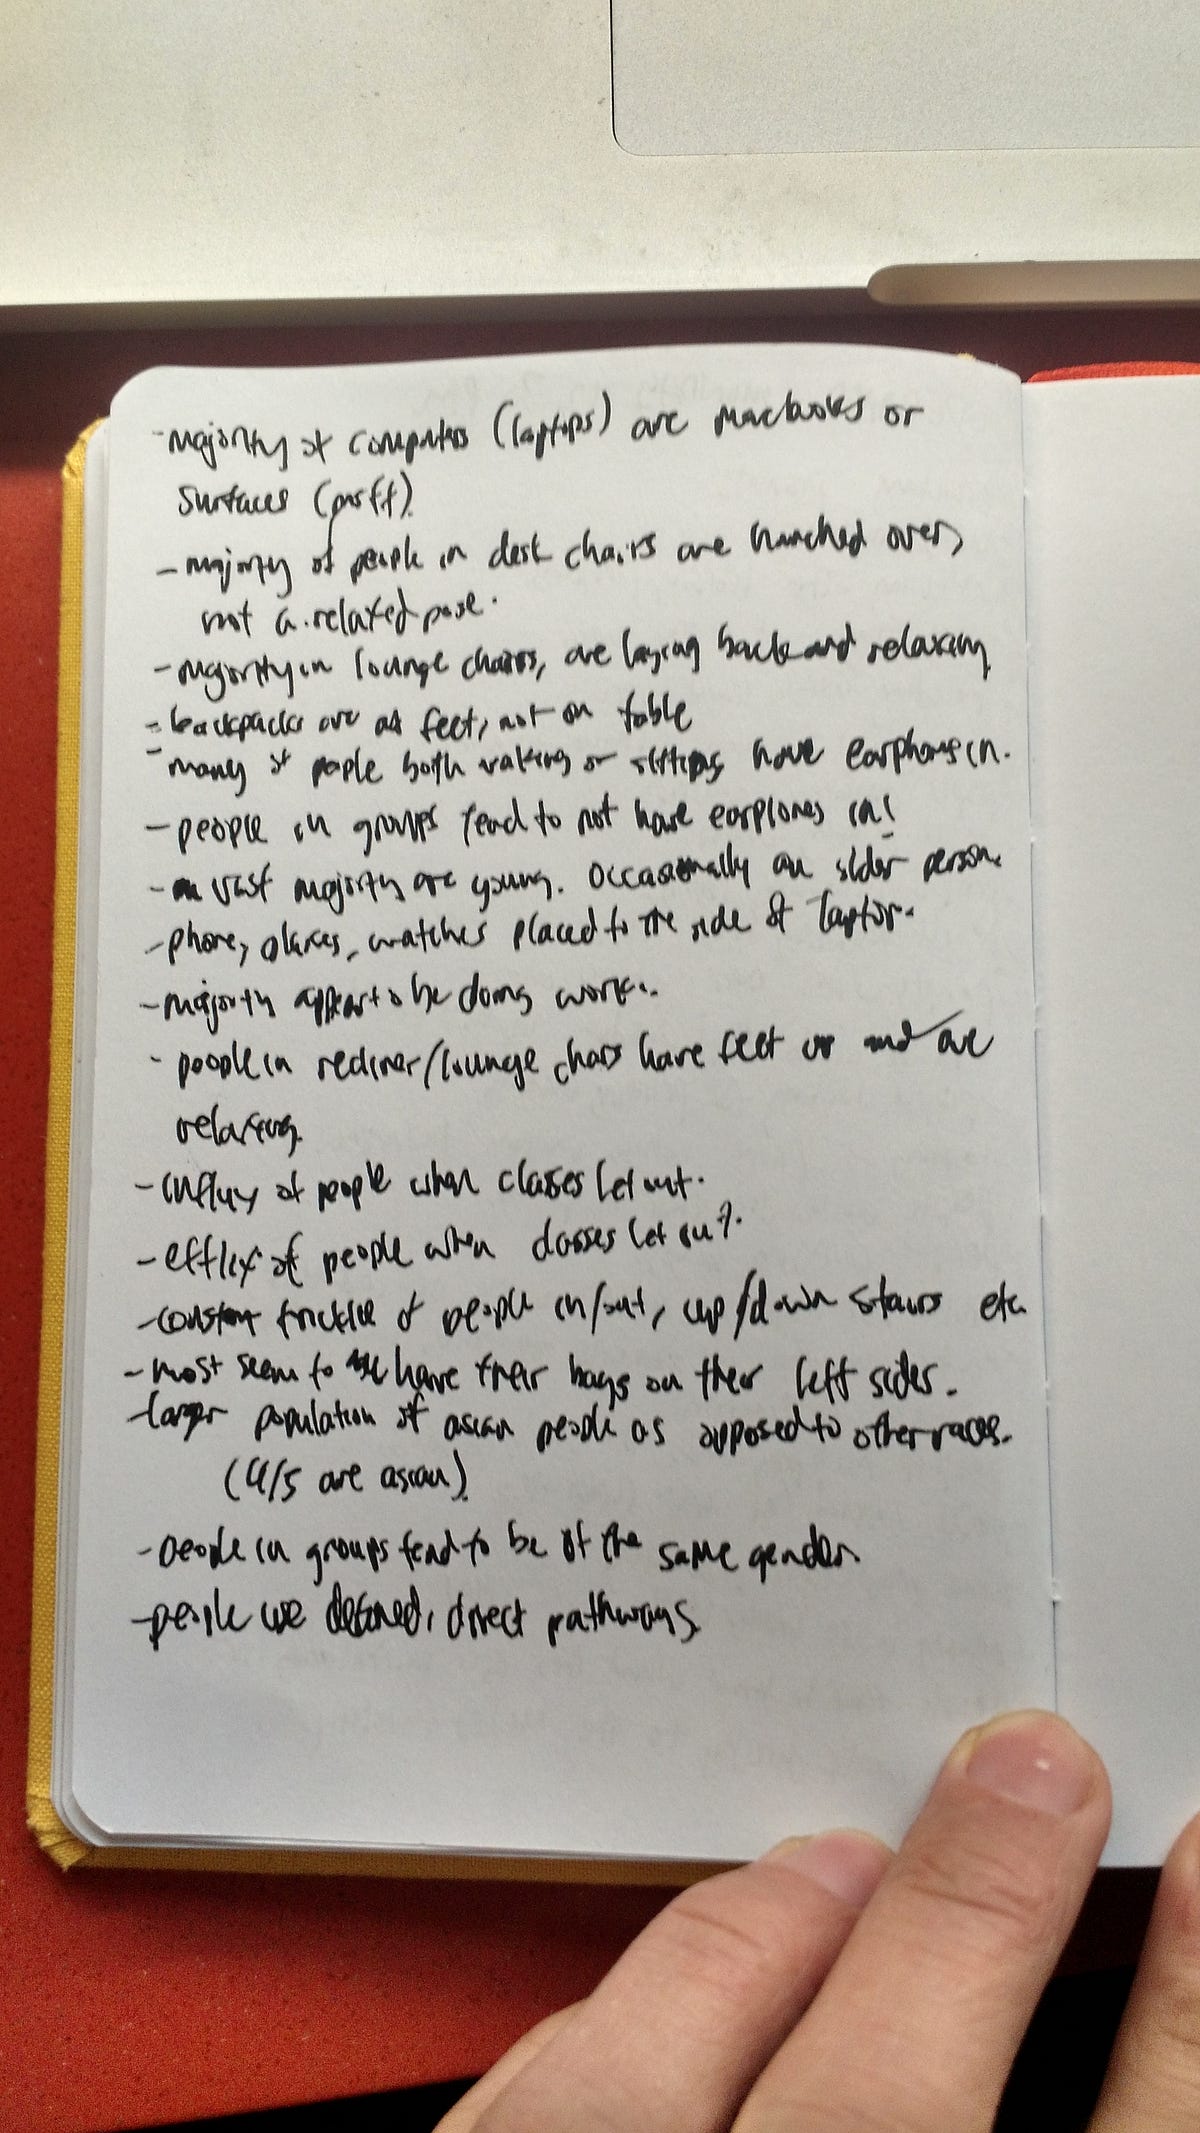 -majority of computers (laptops) are macbooks or
surfaces (msft).
- majority of people in desk chairs are hunched over,
not a relaxed pose.
- majority in lounge chairs, are laying back and relaxing
- backpacks are at feet, not on table
- many of people both walking or sitting have earphones in.
- people in groups tend to not have earphones in!
- vast majority are young. Occasionally an older person.
- phone, glasses, watches placed to the side of laptop.
- majority appear to be doing work.
- people in recliner/lounge chairs have feet up and are
relaxing.
- influx of people when classes let out.
- efflux of people when classes let out.
- constant trickle of people in/out, up/down stairs etc
- most seem to have their bags on their left sides.
- larger population of asian people as opposed to other races.
(4/5 are asian).
- people in groups tend to be of the same gender.
- people use defined, direct pathways